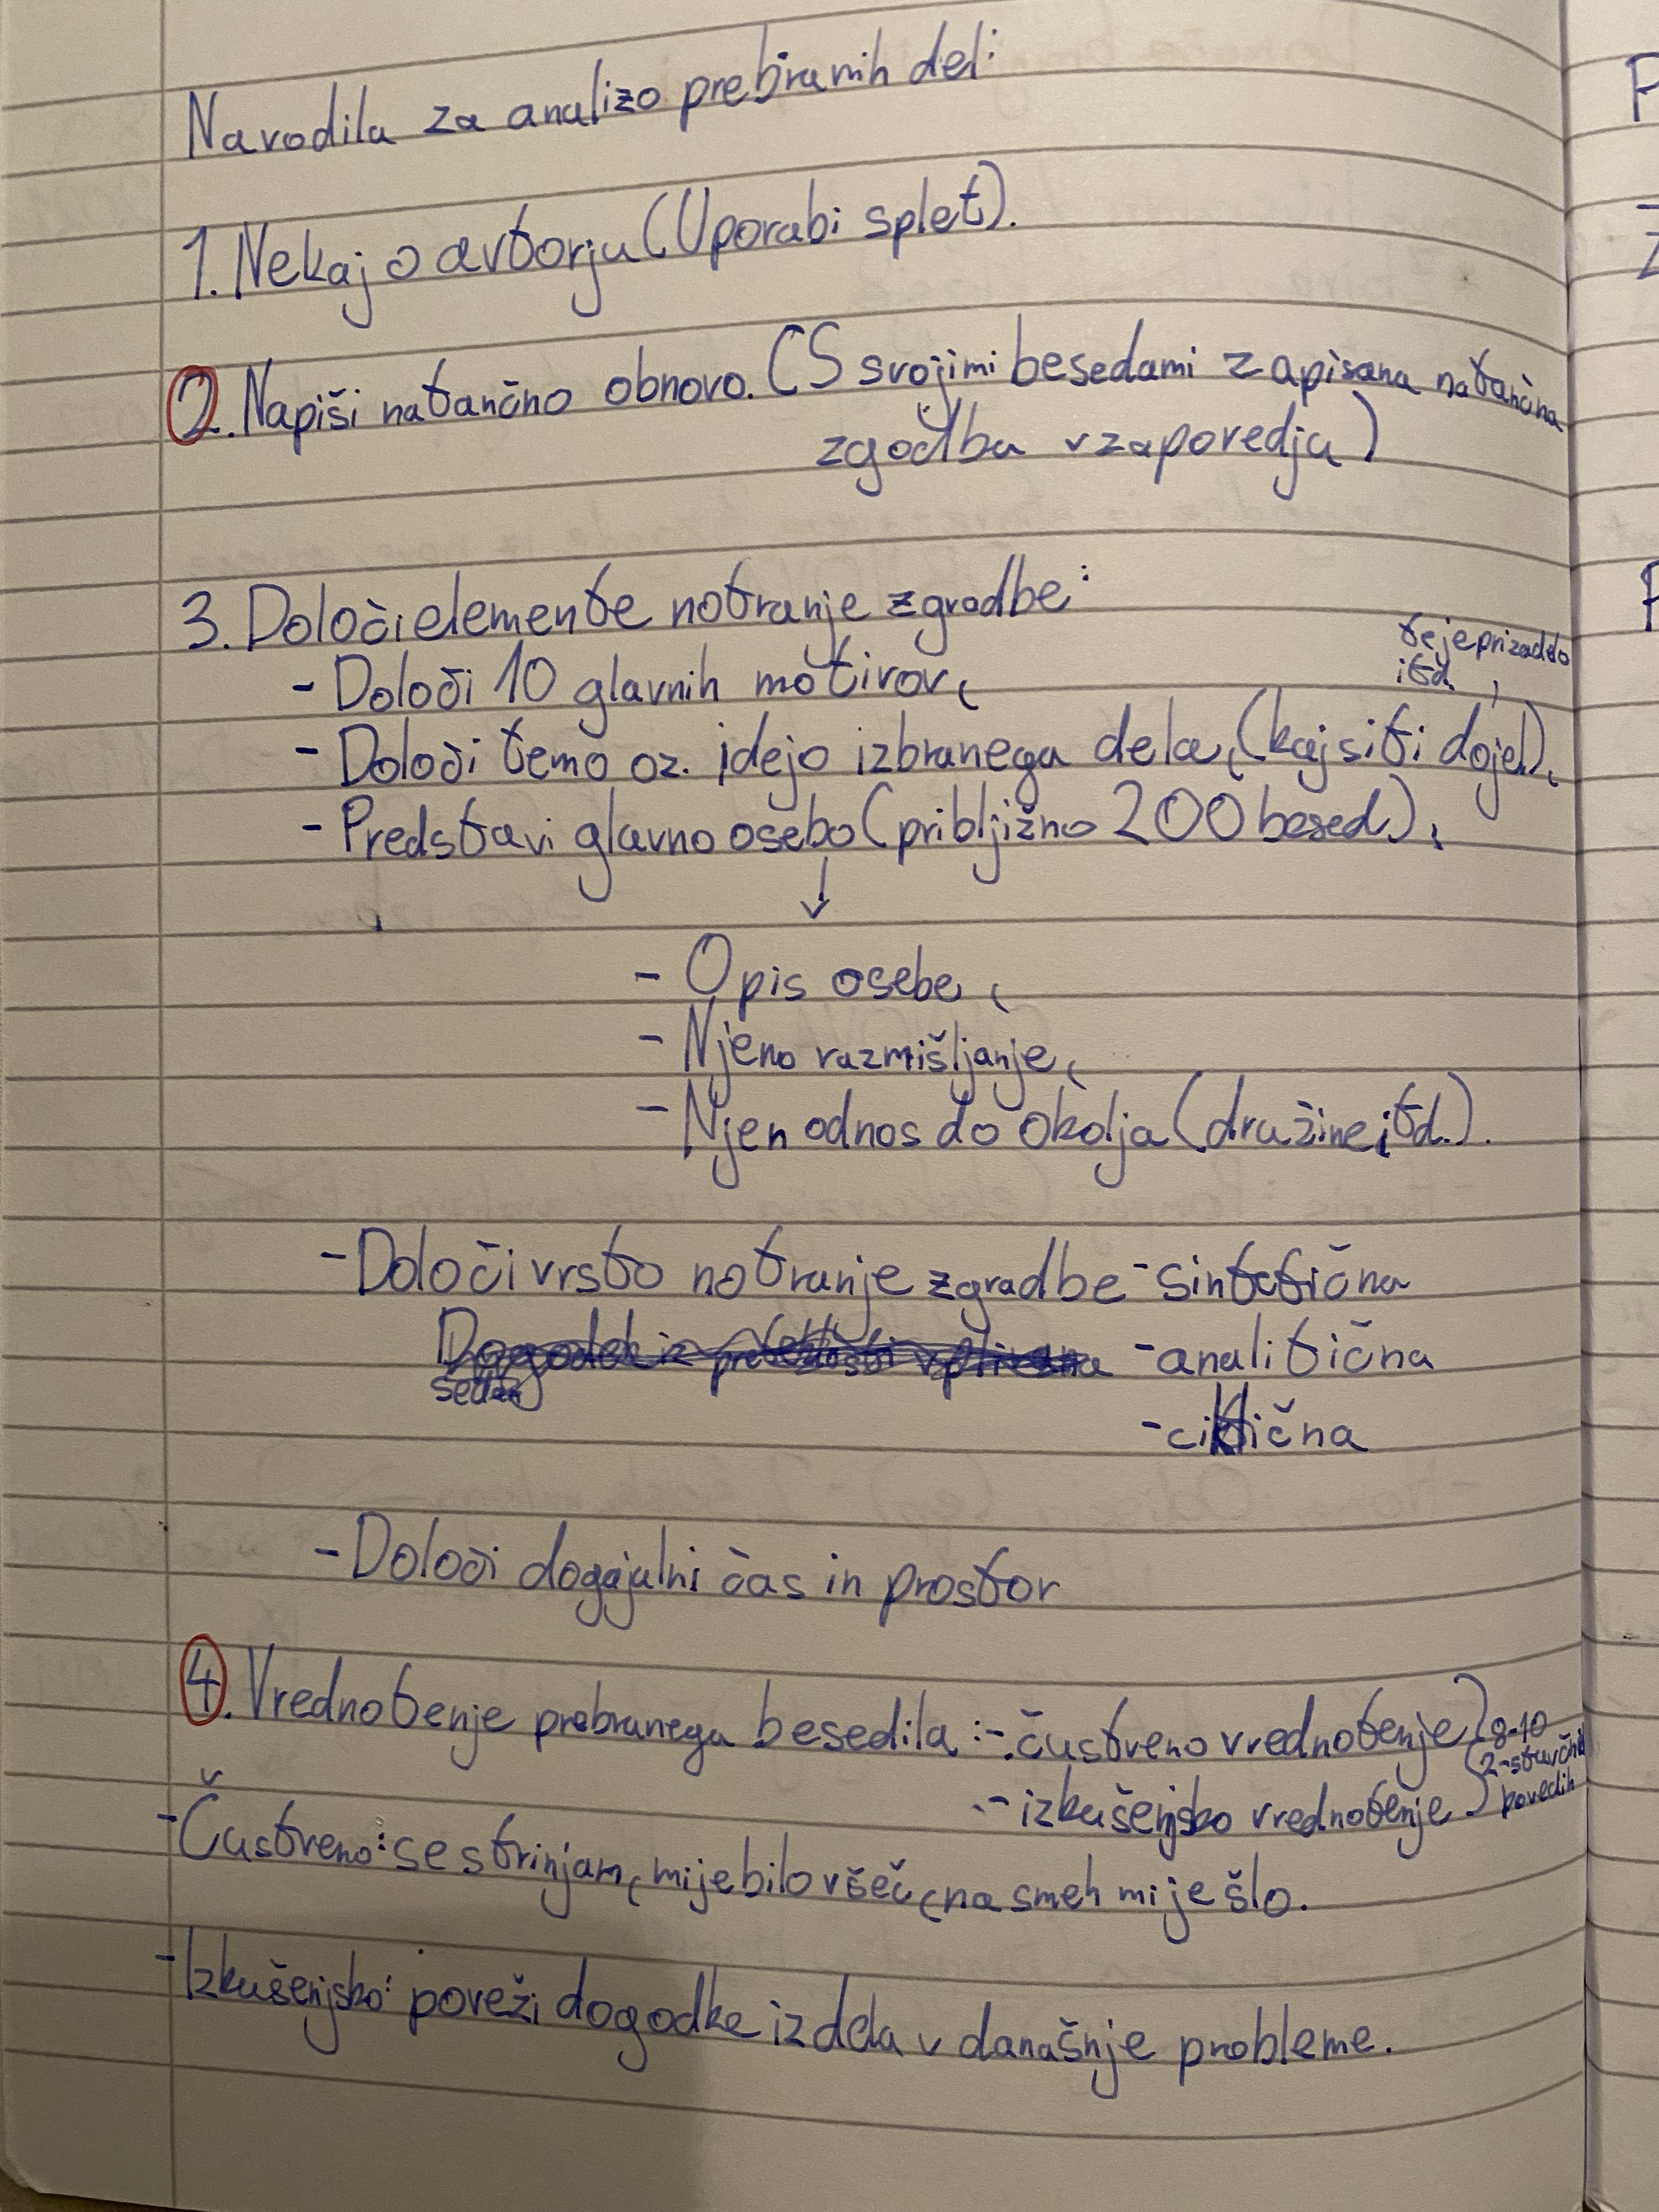 Navodila za analizo prebranih del:
1. Nekaj o avtorju (Uporabi splet).
2. Napiši natančno obnovo. (S svojimi besedami zapisana natančna
zgodba v zaporedju)
3. Določi elemente notranje zgradbe:
- Določi 10 glavnih motivov,
te je prizadelo
itd.,
- Določi temo oz. idejo izbranega dela, (kaj si ti dojel),
- Predstavi glavno osebo (približno 200 besed.),
↓
- Opis osebe,
- Njeno razmišljanje,
- Njen odnos do okolja (družine, itd.).
- Določi vrsto notranje zgradbe - sintetična
- analitična
- ciklična
- Določi dogajalni čas in prostor
4. Vrednotenje prebranega besedila: - čustveno vrednotenje } 8-10
2-stavčnih
- izkušenjsko vrednotenje povedih
- Čustveno: se strinjam, mi je bilo všeč, na smeh mi je šlo.
- Izkušenjsko: poveži dogodke iz dela v današnje probleme.